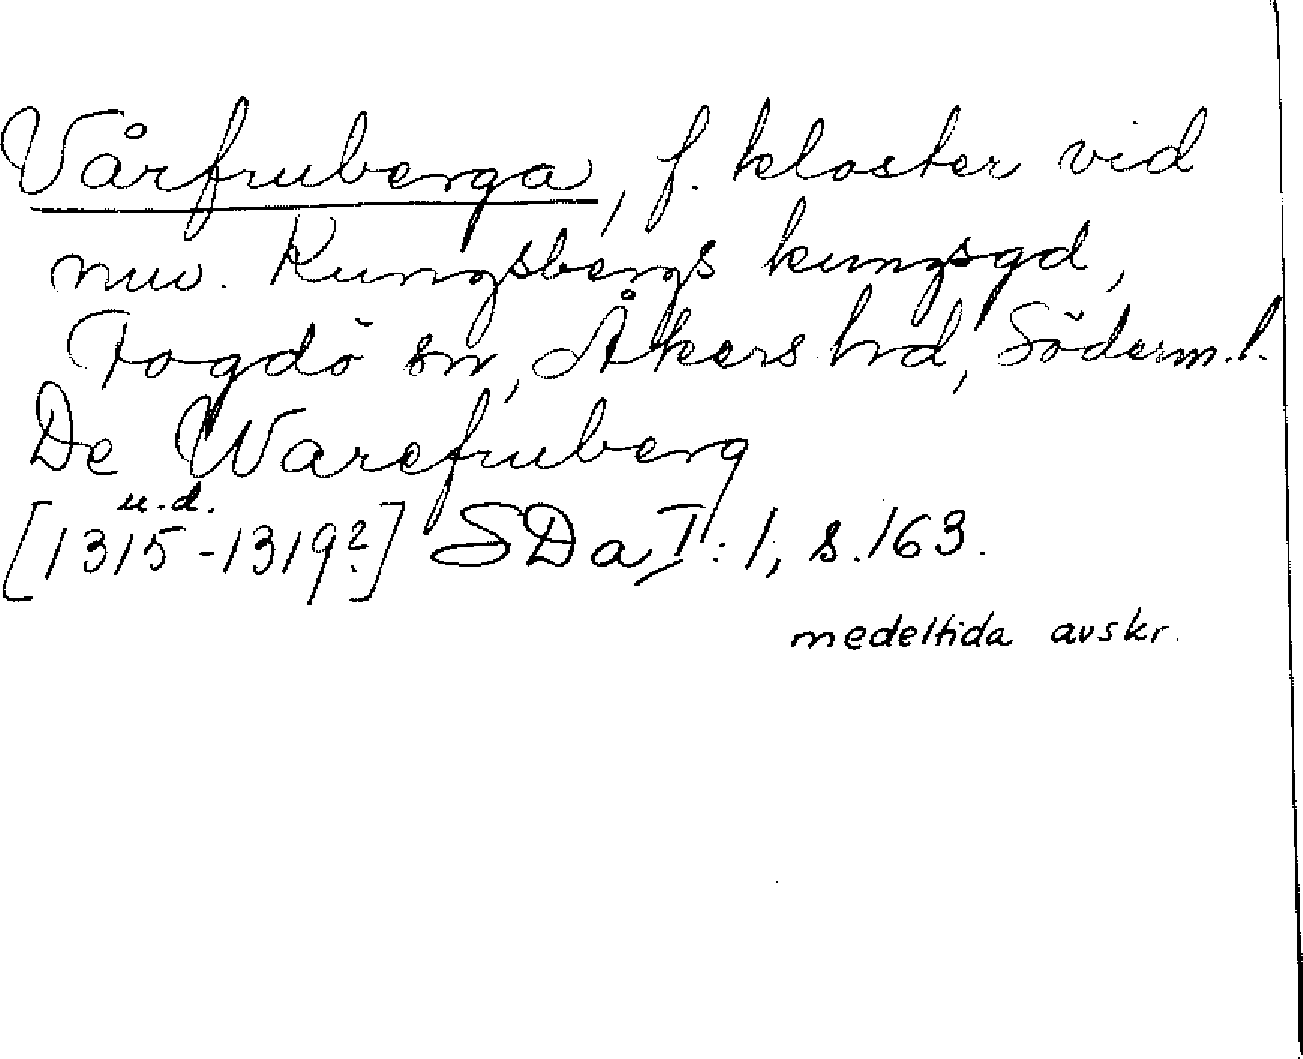 Vårfruberga, f. kloster vid
nuv. Kungsbergs kungsgd,
Fogdö sn, Åkers hd, Söderm. l.
De Warefruberg
u.d.
[1315-1319?] SDa I: 1, s. 163.
medeltida avskr.